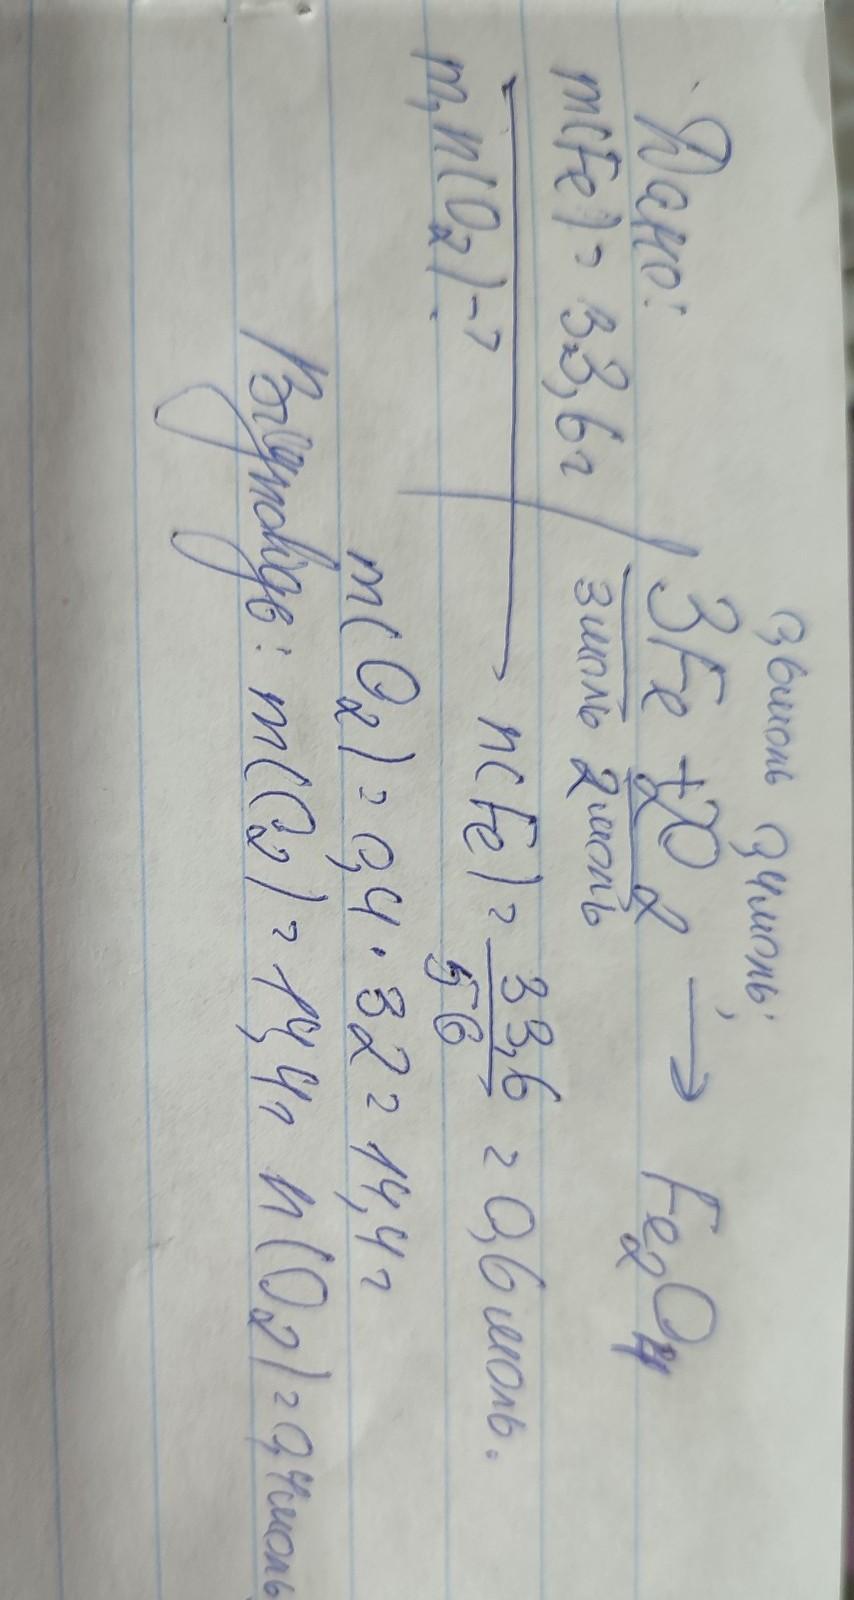 Дано:
m(Fe) = 33,6г
m, n(O2) - ?
0,6моль 0,4моль;
3Fe + 2O2 → Fe2O4
3моль 2моль
n(Fe) = 33,6/56 = 0,6 моль.
m(O2) = 0,4 · 32 = 14,4г
m(O2) = 14,4г n(O2) = 0,4моль